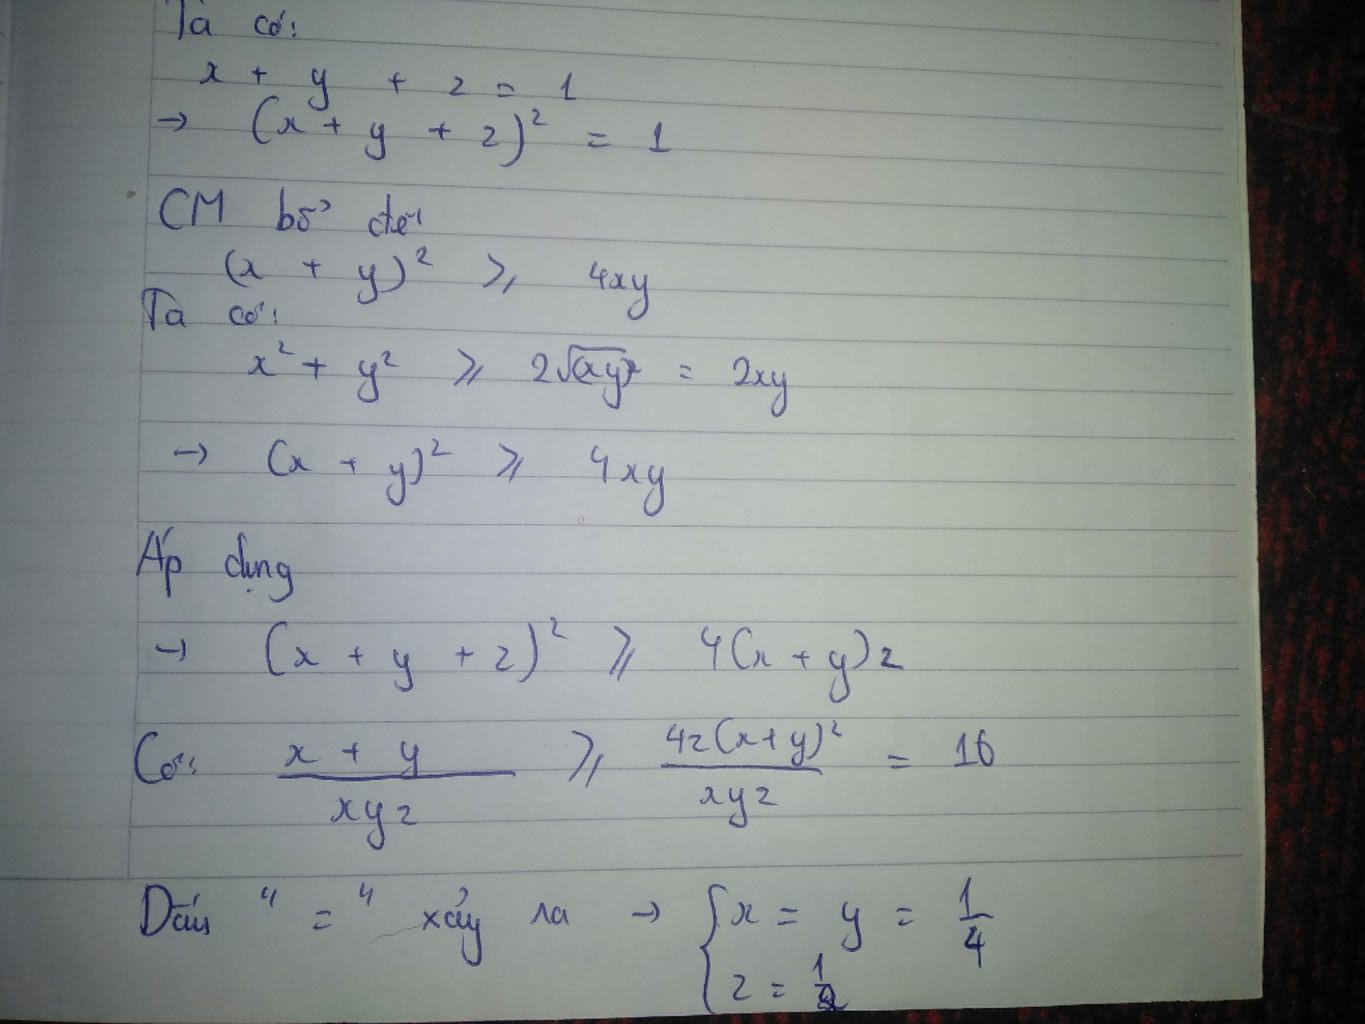 Ta có:
x + y + z = 1
→ (x + y + z)² = 1
CM bổ đề:
(x + y)² ⩾ 4xy
Ta có:
x² + y² ⩾ 2√(xy)² = 2xy
→ (x + y)² ⩾ 4xy
Áp dụng
→ (x + y + z)² ⩾ 4(x + y)z
Có: (x + y)/(xyz) ⩾ (4z(x+y)²)/(xyz) = 16
Dấu "=" xảy ra → { x = y = 1/4
z = 1/2